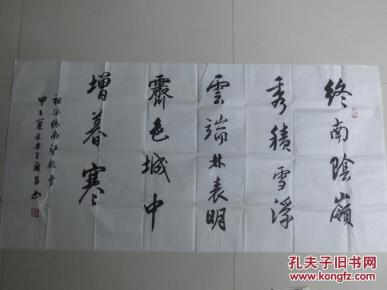 終南陰嶺
秀積雪浮
雲端林表明
霽色城中
增暮寒
祖詠終南望餘雪
甲午夏長安王
孔夫子旧书网